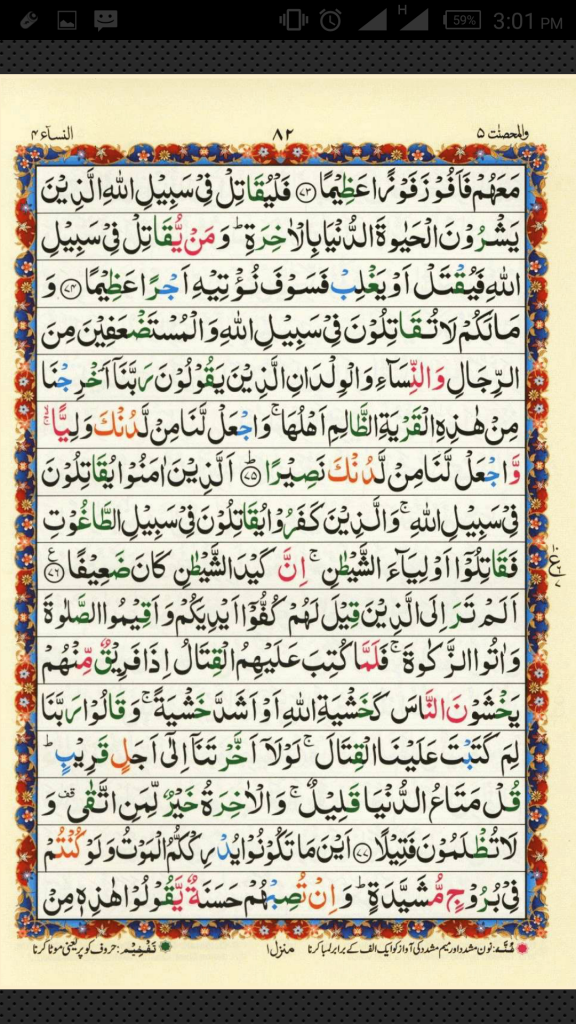 59% 3:01 PM
H
والمحصنت ۵
۸۲
النسآء ۴
مَعَهُمْ فَاَفُوْزَ فَوْزًا عَظِيْمًا ﴿۷۳﴾ فَلْيُقَاتِلْ فِيْ سَبِيْلِ اللّٰهِ الَّذِيْنَ
يَشْرُوْنَ الْحَيٰوةَ الدُّنْيَا بِالْاٰخِرَةِ ؕ وَ مَنْ يُّقَاتِلْ فِيْ سَبِيْلِ
اللّٰهِ فَيُقْتَلْ اَوْ يَغْلِبْ فَسَوْفَ نُؤْتِيْهِ اَجْرًا عَظِيْمًا ﴿۷۴﴾ وَ
مَا لَكُمْ لَا تُقَاتِلُوْنَ فِيْ سَبِيْلِ اللّٰهِ وَ الْمُسْتَضْعَفِيْنَ مِنَ
الرِّجَالِ وَ النِّسَآءِ وَ الْوِلْدَانِ الَّذِيْنَ يَقُوْلُوْنَ رَبَّنَاۤ اَخْرِجْنَا
مِنْ هٰذِهِ الْقَرْيَةِ الظَّالِمِ اَهْلُهَا ۚ وَ اجْعَلْ لَّنَا مِنْ لَّدُنْكَ وَلِيًّا ۙۚ
وَّ اجْعَلْ لَّنَا مِنْ لَّدُنْكَ نَصِيْرًا ﴿ؕ۷۵﴾ اَلَّذِيْنَ اٰمَنُوْا يُقَاتِلُوْنَ
فِيْ سَبِيْلِ اللّٰهِ ۚ وَ الَّذِيْنَ كَفَرُوْا يُقَاتِلُوْنَ فِيْ سَبِيْلِ الطَّاغُوْتِ
فَقَاتِلُوْۤا اَوْلِيَآءَ الشَّيْطٰنِ ۚ اِنَّ كَيْدَ الشَّيْطٰنِ كَانَ ضَعِيْفًا ﴿۷۶﴾
اَلَمْ تَرَ اِلَى الَّذِيْنَ قِيْلَ لَهُمْ كُفُّوْۤا اَيْدِيَكُمْ وَ اَقِيْمُوا الصَّلٰوةَ
وَ اٰتُوا الزَّكٰوةَ ۚ فَلَمَّا كُتِبَ عَلَيْهِمُ الْقِتَالُ اِذَا فَرِيْقٌ مِّنْهُمْ
يَخْشَوْنَ النَّاسَ كَخَشْيَةِ اللّٰهِ اَوْ اَشَدَّ خَشْيَةً ۚ وَ قَالُوْا رَبَّنَا
لِمَ كَتَبْتَ عَلَيْنَا الْقِتَالَ ۚ لَوْ لَاۤ اَخَّرْتَنَاۤ اِلٰۤى اَجَلٍ قَرِيْبٍ ؕ
قُلْ مَتَاعُ الدُّنْيَا قَلِيْلٌ ۚ وَ الْاٰخِرَةُ خَيْرٌ لِّمَنِ اتَّقٰى قف وَ
لَا تُظْلَمُوْنَ فَتِيْلًا ﴿۷۷﴾ اَيْنَ مَا تَكُوْنُوْا يُدْرِكْكُّمُ الْمَوْتُ وَ لَوْ كُنْتُمْ
فِيْ بُرُوْجٍ مُّشَيَّدَةٍ ؕ وَ اِنْ تُصِبْهُمْ حَسَنَةٌ يَّقُوْلُوْا هٰذِهٖ مِنْ
غُنّہ: نون مشدد اور میم مشدد کی آواز کو ایک الف کے برابر لمبا کرنا
منزل ۱
تَفْخِیْم: حروف کو پُر یعنی موٹا کرنا